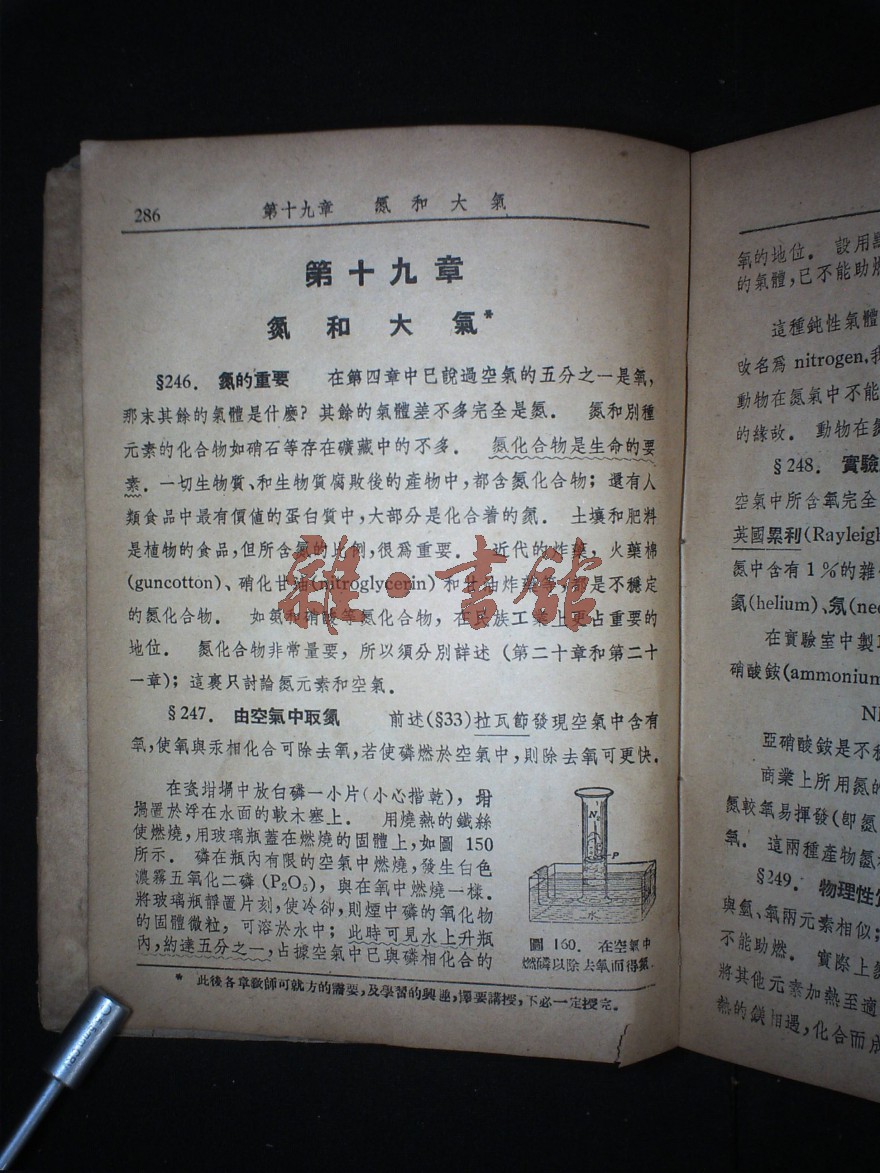 286
第十九章 氮和大氣
第十九章
氮和大氣*
§246. 氮的重要 在第四章中已說過空氣的五分之一是氧,
那末其餘的氣體是什麽? 其餘的氣體差不多完全是氮. 氮和別種
元素的化合物如硝石等存在礦藏中的不多. 氮化合物是生命的要
素. 一切生物質、和生物質腐敗後的產物中, 都含氮化合物; 還有人
類食品中最有價値的蛋白質中, 大部分是化合着的氮. 土壤和肥料
是植物的食品, 但所含氮的比例, 很爲重要. 近代的炸藥, 火藥棉
(guncotton)、硝化甘油(nitroglycerin) 和甘油炸藥等, 都是不穩定
的氮化合物. 如氨和硝酸等氮化合物, 在民族工業上更占重要的
地位. 氮化合物非常量要, 所以須分別詳述 (第二十章和第二十
一章); 這裏只討論氮元素和空氣.
§247. 由空氣中取氮 前述(§33)拉瓦節發現空氣中含有
氧, 使氧與汞相化合可除去氧, 若使磷燃於空氣中, 則除去氧可更快.
在瓷坩堝中放白磷一小片(小心揩乾), 坩
堝置於浮在水面的軟木塞上. 用燒熱的鐵絲
使燃燒, 用玻璃瓶蓋在燃燒的固體上, 如圖 150
所示. 磷在瓶內有限的空氣中燃燒, 發生白色
濃霧五氧化二磷 (P₂O₅), 與在氧中燃燒一樣.
將玻璃瓶靜置片刻, 使冷卻, 則煙中磷的氧化物
的固體微粒, 可溶於水中; 此時可見水上升瓶
內, 約達五分之一, 占據空氣中已與磷相化合的
N₂
P
水
圖 160. 在空氣中
燃磷以除去氧而得氮.
* 此後各章敎師可就方的需要, 及學習的興趣, 擇要講授, 不必一定授完.
雜·書館
氧的地位. 設用
的氣體, 已不能助
這種鈍性氣體
改名爲 nitrogen,
動物在氮氣中不能
的緣故. 動物在
§248. 實驗
空氣中所含氧完全
英國累利(Rayleigh
氮中含有 1%的雜
氦(helium)、氖(ne
在實驗室中製
硝酸銨(ammonium
N
亞硝酸銨是不
商業上所用氮的
氮較氧易揮發(卽氮
氧. 這兩種產物氮
§249. 物理性
與氫、氧兩元素相似;
不能助燃. 實際上
將其他元素加熱至適
熱的鎂相遇, 化合而成